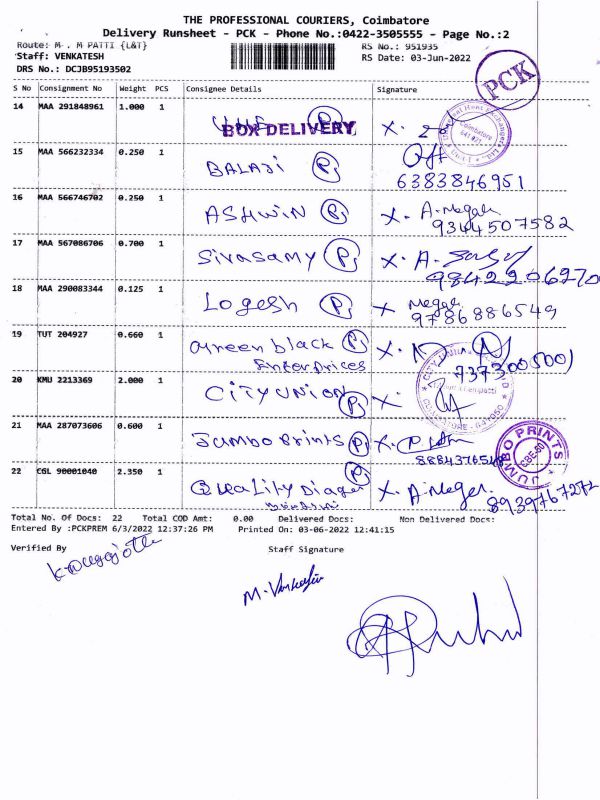 THE PROFESSIONAL COURIERS, Coimbatore
Delivery Runsheet - PCK - Phone No.:0422-3505555 - Page No.:2
Route: M-. M PATTI {L&T}
RS No.: 951935
Staff: VENKATESH
RS Date: 03-Jun-2022
DRS No.: DCJB95193502
PCK
S No Consignment No Weight PCS Consignee Details Signature
14 MAA 291848961 1.000 1 BOX DELIVERY P X.
Coimbatore
15 MAA 566232334 0.250 1 BALAJI P
6383846951
16 MAA 566746702 0.250 1 ASHWIN P X. A. Megala
9344507582
17 MAA 567086706 0.700 1 Sivasamy P X. A.
9842206270
18 MAA 290083344 0.125 1 Logesh P X
9786886549
19 TUT 204927 0.660 1 Green black P X.
Enterprices 7373005001
20 KMU 2213369 2.000 1 CITY UNION P X.
21 MAA 287073606 0.600 1 Jumbo Prints P X.
JUMBO PRINTS CBE-50
22 CGL 90001040 2.350 1 Quality Diager P X. A. Megar.
8939767272
Total No. Of Docs: 22 Total COD Amt: 0.00 Delivered Docs: Non Delivered Docs:
Entered By :PCKPREM 6/3/2022 12:37:26 PM Printed On: 03-06-2022 12:41:15
Verified By Staff Signature
M. Venkatesh